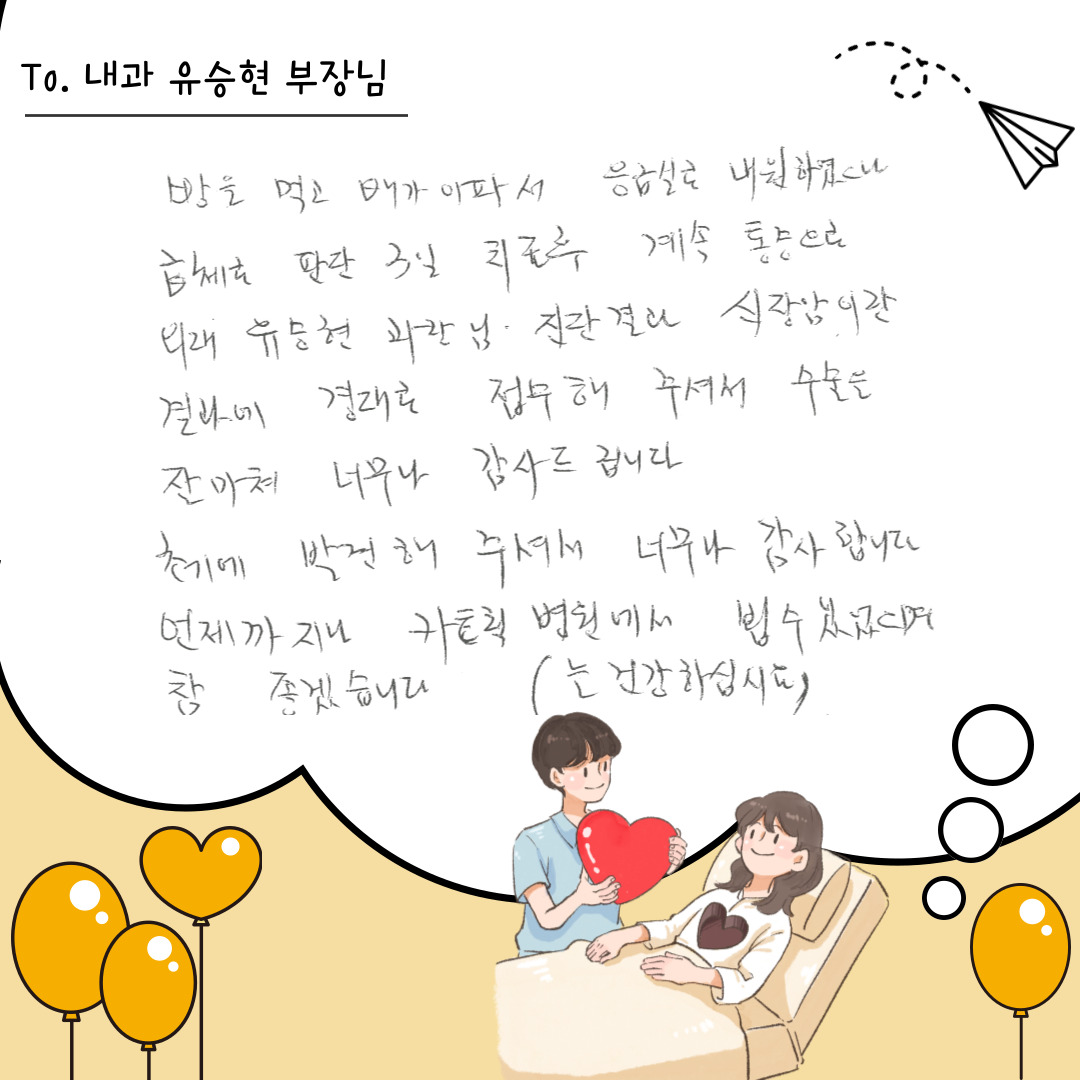 To. 내과 유승현 부장님
밤을 먹고 배가 아파서 응급실로 내원하였으나
급체로 판단 3일 치료후 계속 통증으로
외래 유승현 과장님 진단결과 식장암이란
결과에 결대로 접수해 주셔서 수술을
잘마쳐 너무나 감사드립니다
초기에 발견해 주셔서 너무나 감사합니다
언제까지나 카톨릭 병원에서 뵐수 있었으면
참 좋겠습니다 (늘 건강하십시요)